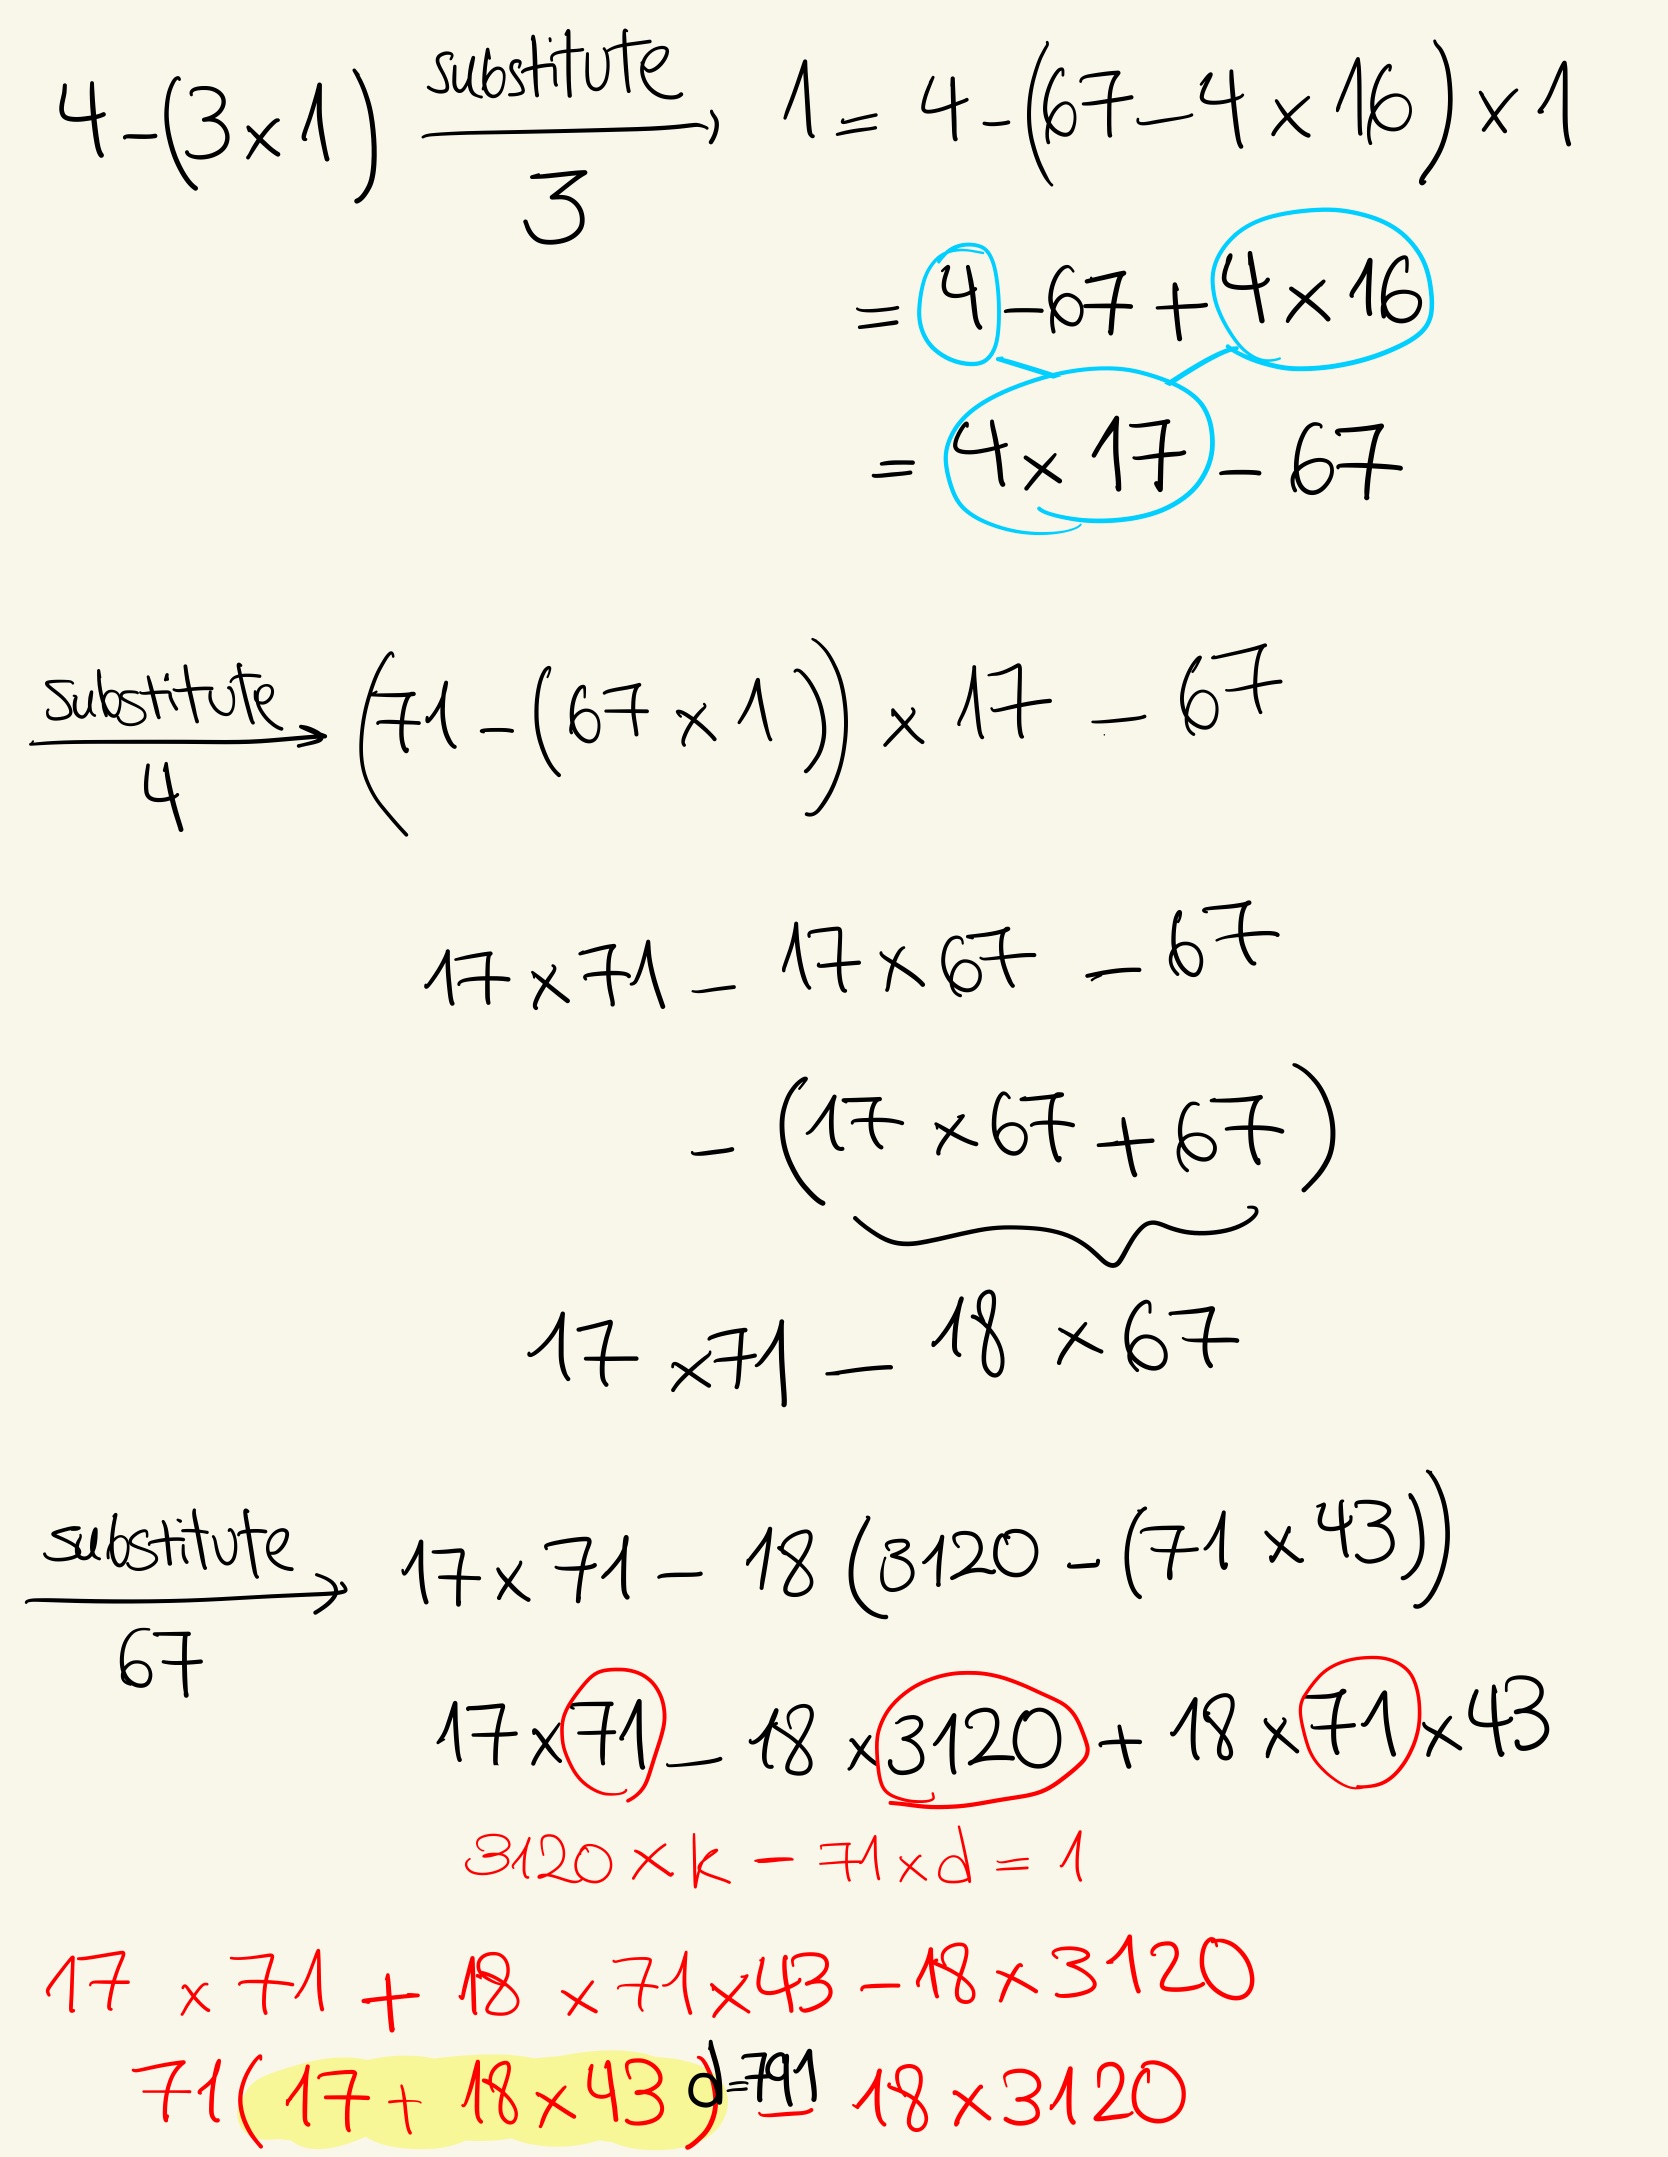 4-(3×1) substitute 3 → 1 = 4-(67-4×16)×1
= 4-67+4×16
= 4×17-67
substitute 4 → (71-(67×1))×17-67
17×71-17×67-67
-(17×67+67)
17×71-18×67
substitute 67 → 17×71-18(3120-(71×43))
17×71-18×3120+18×71×43
3120×k-71×d=1
17×71+18×71×43-18×3120
71(17+18×43) d=791 - 18×3120